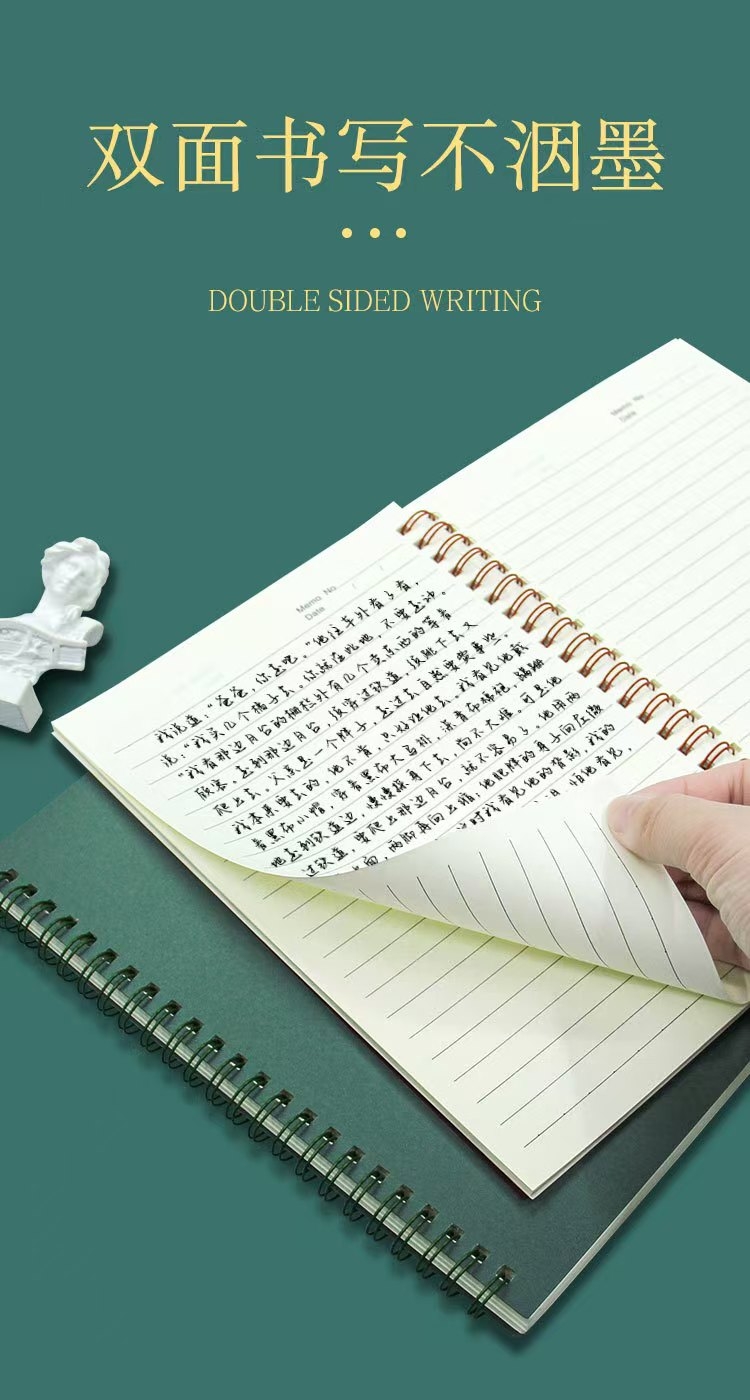 双面书写不洇墨
DOUBLE SIDED WRITING
Memo No.
Date
Memo No.
Date
我说道："爸爸,你走吧。"他往车外看了看,
说:"我买几个橘子去。你就在此地,不要走动。
"我看那边月台的栅栏外有几个卖东西的等着
顾客。走到那边月台,须穿过铁道,须跳下去又
爬上去。父亲是一个胖子,走过去自然要费事些。
我本来要去的,他不肯,只好让他去。我看见他戴
着黑布小帽,穿着黑布大马褂,深青布棉袍,蹒跚
地走到铁道边,慢慢探身下去,尚不大难。可是他
过铁道,要爬上那边月台,就不容易了。他用两
上面,两脚再向上缩,他肥胖的身子向左微
时我看见他的背影,我的
怕他看见,